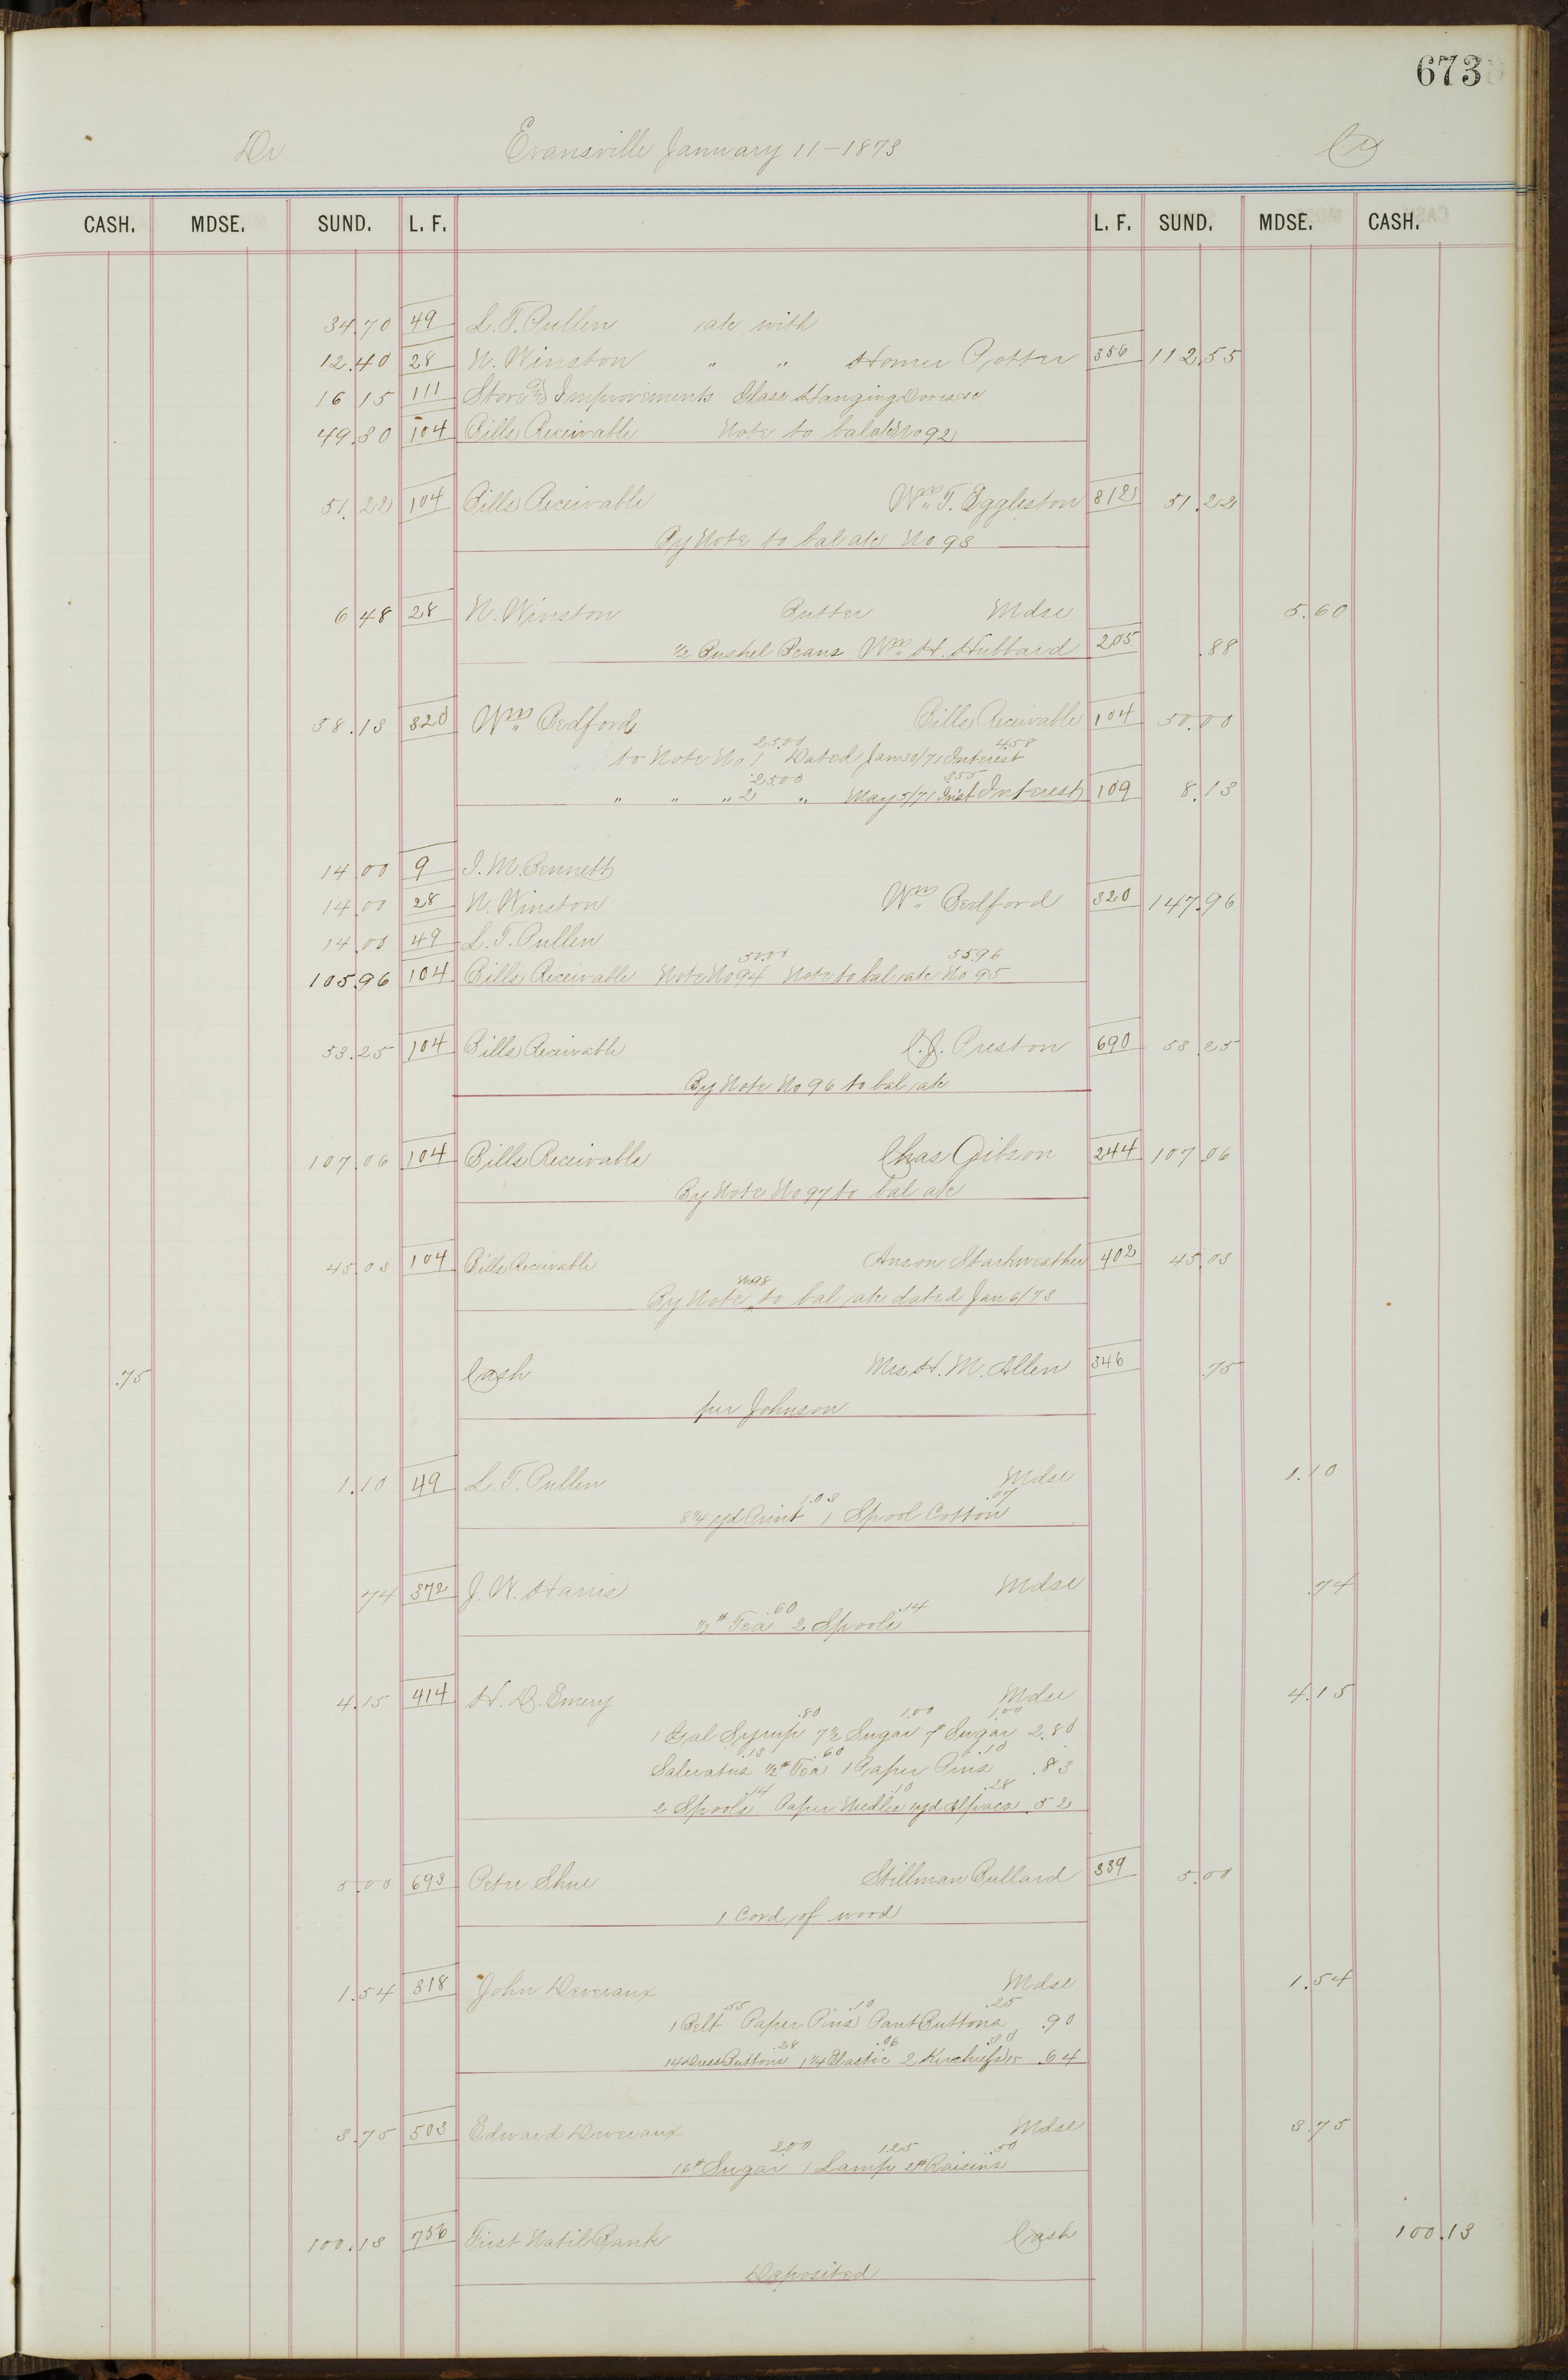 673
Dr Evansville January 11-1873 Cr
CASH. MDSE. SUND. L. F. L. F. SUND. MDSE. CASH.
34.70 49 L. T. Pullen a/c with
12.40 28 N. Winston " " Homer Potter 356 112.55
16 15 111 Store Improvements Glass Hanging Doors &c
49.30 104 Bills Receivable Note to bal a/c No 92
51.22 104 Bills Receivable Wm T. Eggleston 312 51.22
By Note to bal a/c No 93
6 48 28 N. Winston Butter Mdse 5.60
1/2 Bushel Beans Wm H. Hubbard 205 .88
58.13 320 Wm Bedford Bills Receivable 104 50.00
25.00 4.58
to Note No 1 Dated Jan 30/71 Interest
25.00 3.55
" " " 2 " May 5/71 Interest 109 8.13
14 00 9 I. M. Bennett
14 00 28 N. Winston Wm Bedford 320 147.96
14.00 49 L. T. Pullen
50.00 55.96
105.96 104 Bills Receivable Note No 94 Note to bal a/c No 95
53.25 104 Bills Receivable C. J. Preston 690 53 25
By Note No 96 to bal a/c
107.06 104 Bills Receivable Chas Gibson 244 107.06
By Note No 97 to bal a/c
45.03 104 Bills Receivable Anson Starkweather 402 45.03
No 98
By Note to bal a/c dated Jan 6/73
.75 Cash Mrs H. M. Allen 346 .75
per Johnson
1.10 49 L. T. Pullen Mdse 1.10
1.03 .07
8 1/4 yd Print 1 Spool Cotton
74 372 J. W. Harris Mdse .74
.60 .14
1/2# Tea 2 Spools
4.15 414 H. D. Emery Mdse 4.15
.80 1.00 1.00
1 Gal Syrup 7 1/2 Sugar 8# Sugar 2.80
.13 .60 .10
Saleratus 1/2# Tea 1 Paper Pins .83
.14 .10 .28
2 Spools Paper Needles yd Alpaca .52
5.00 693 Peter Shue Stillman Bullard 339 5.00
1 Cord of wood
1.54 318 John Deveraux Mdse 1.54
.55 .10 .25
1 Belt Paper Pins Pant Buttons .90
.28 .06 .30
14 Dress Buttons 1 1/4 Elastic 2 Kerchiefs 15 .64
3.75 503 Edward Deveraux Mdse 3.75
2.00 1.25 .50
16# Sugar 1 Lamp 2# Raisins
100.13 756 First Nat'l Bank Cash 100.13
Deposited